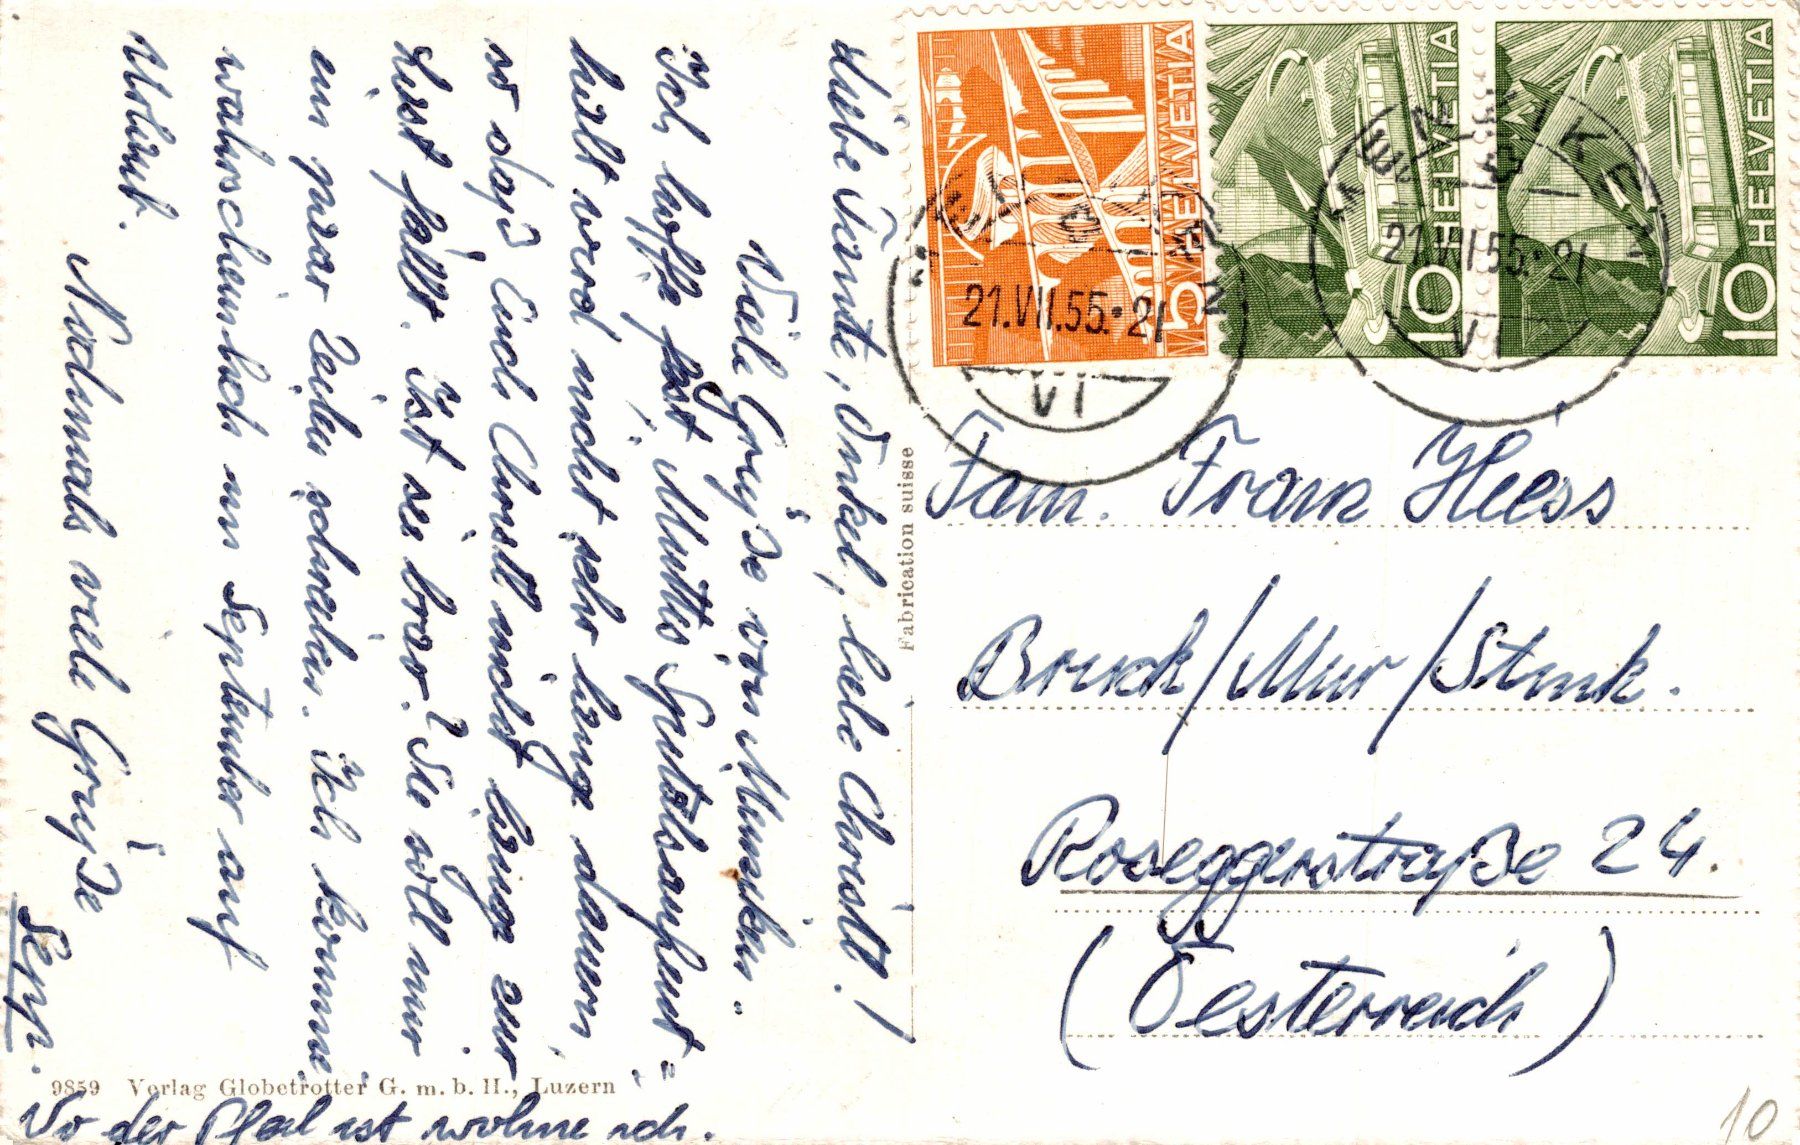 Liebe Tante, Onkel, liebe Christl!
Viele Grüße von Menziken.
Ich hoffe fest Muttis Spitalsaufent-
halt wird nicht sehr lange dauern,
so daß Euch Christl nicht lange zur
Last fällt. Ist sie brav? Sie soll nur
ein paar Zeilen schreiben. Ich komme
wahrscheinlich im September auf
Urlaub.
Nochmals viele Grüße
Sepp.
Wo der Pfeil ist wohne ich.
9859 Verlag Globetrotter G. m. b. H., Luzern
Fabrication suisse
HELVETIA
5
HELVETIA
10
HELVETIA
10
MENZIKEN
21.VII.55.-21
VI
MENZIKEN
21.VII.55.-21
VI
Fam. Franz Hiess
Bruck/Mur/Stmk.
Roseggerstraße 24.
(Oesterreich)
10